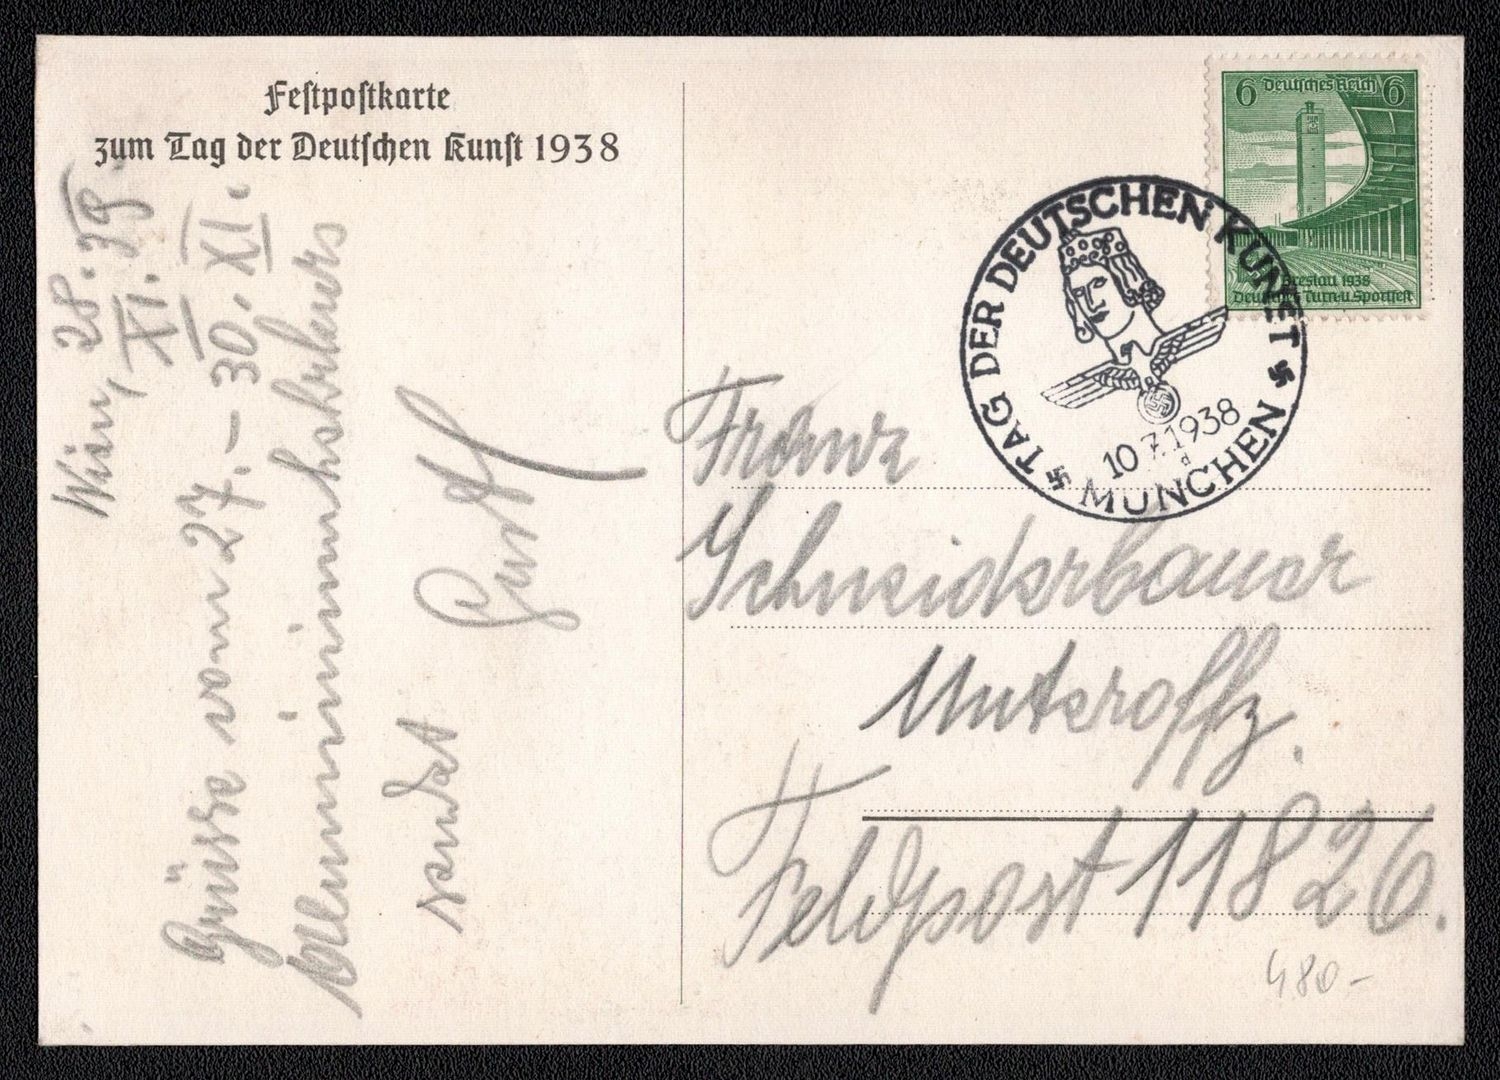 Festpostkarte
zum Tag der Deutschen Kunst 1938
Wien, 28. XI. 39.
Grüsse vom 27. – 30. XI.
sendet Gustl
6 Deutsches Reich 6
Breslau 1938
Deutsches Turn-u. Sportfest
TAG DER DEUTSCHEN KUNST
10.7.1938
MÜNCHEN
Franz
Schneiderbauer
Unteroffz.
Feldpost 11826.
480-